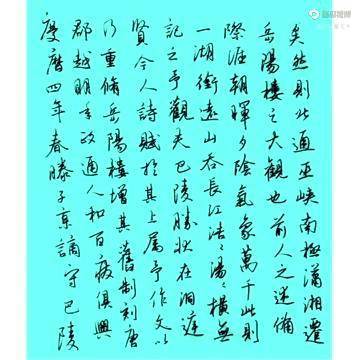 慶曆四年春滕子京謫守巴陵
郡越明年政通人和百廢俱興
乃重修岳陽樓增其舊制刻唐
賢今人詩賦於其上屬予作文以
記之予觀夫巴陵勝狀在洞庭
一湖銜遠山吞長江浩〻湯〻橫無
際涯朝暉夕陰氣象萬千此則
岳陽樓之大觀也前人之述備
矣然則北通巫峽南極瀟湘遷